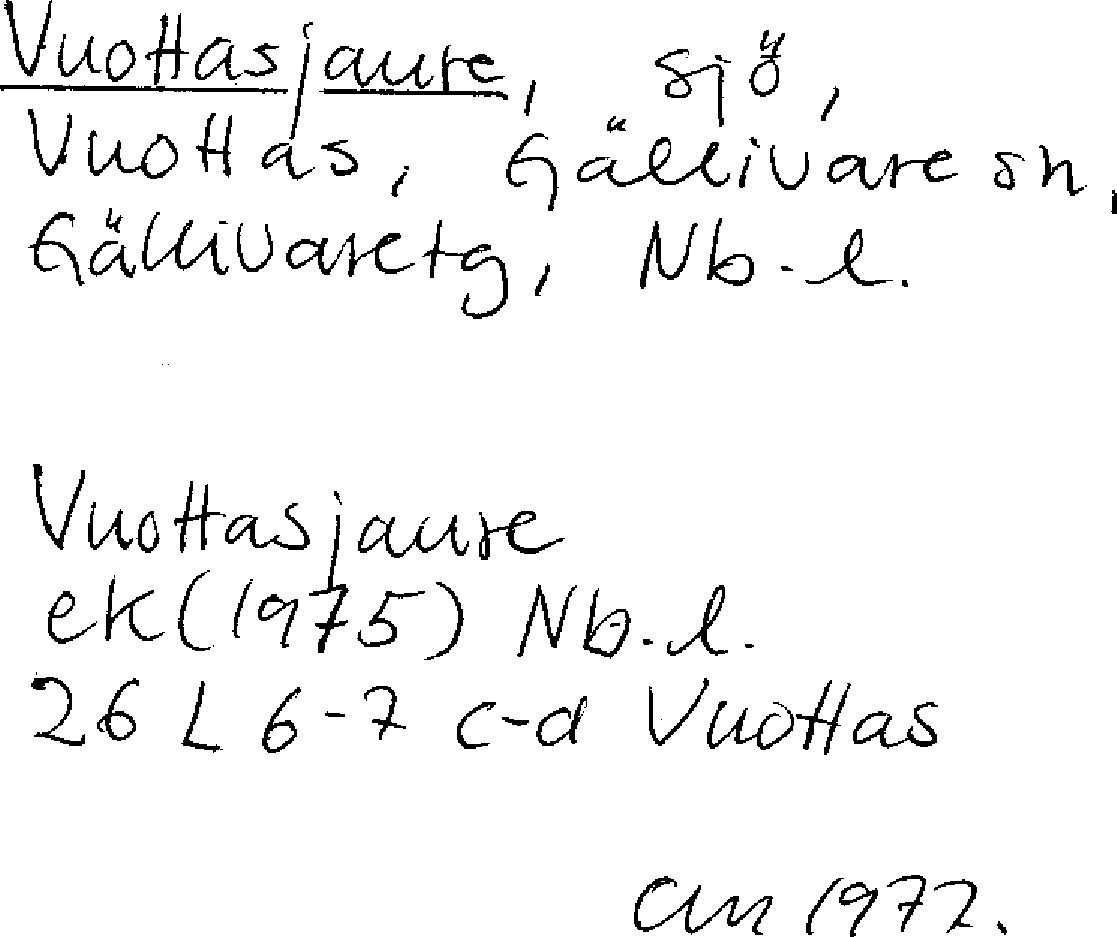 Vuottasjaure, sjö,
Vuottas, Gällivare sn,
Gällivaretg, Nb. l.
Vuottasjaure
ek (1975) Nb. l.
26 L 6-7 c-d Vuottas
1977.